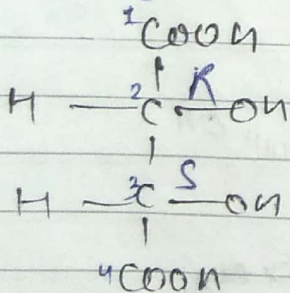 1 COOH
H — 2 C R — OH
H — 3 C S — OH
4 COOH